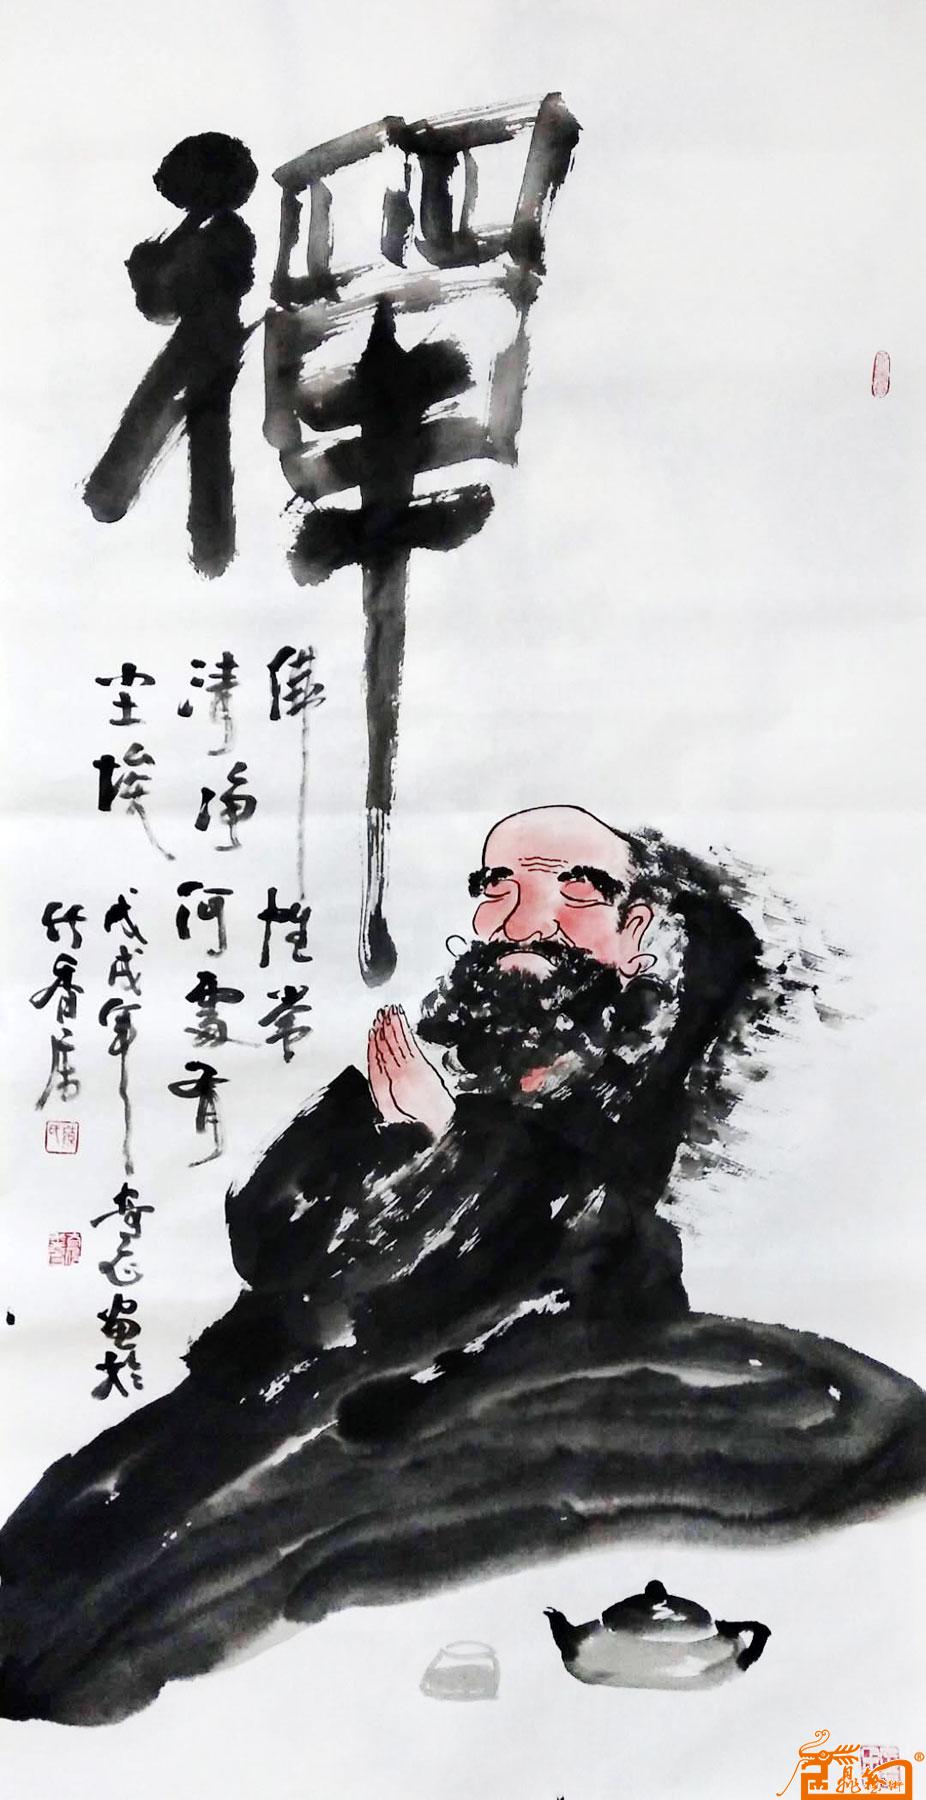 禪
佛性常
清净何處有
尘埃
戊戌年奇志画於
竹香居